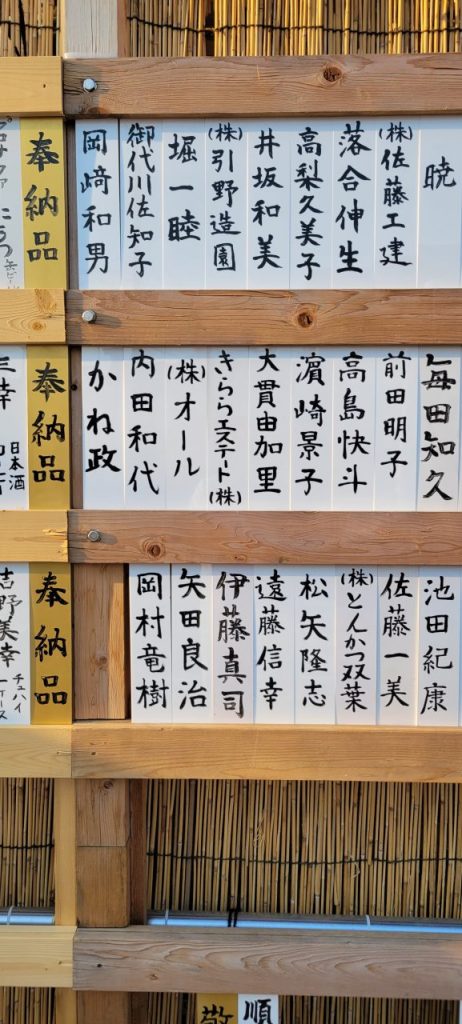 暁
(株)佐藤工建
落合伸生
高梨久美子
井坂和美
(株)引野造園
堀一睦
御代川佐知子
岡﨑和男
奉納品
毎田知久
前田明子
高島快斗
濵崎景子
大貫由加里
きららエステート(株)
(株)オール
内田和代
かね政
奉納品
三幸
日本酒
池田紀康
佐藤一美
(株)とんかつ双葉
松矢隆志
遠藤信幸
伊藤真司
矢田良治
岡村竜樹
奉納品
吉野美幸
チュハイ
一ケース
順
敬